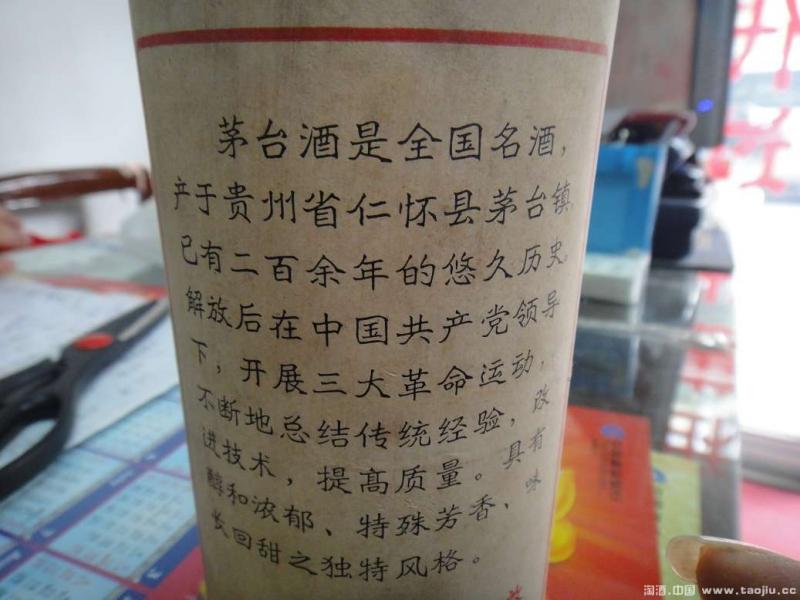 茅台酒是全国名酒,
产于贵州省仁怀县茅台镇
已有二百余年的悠久历史。
解放后在中国共产党领导
下，开展三大革命运动，
不断地总结传统经验，改
进技术，提高质量。具有
醇和浓郁、特殊芳香、味
长回甜之独特风格。
淘酒.中国 www.taojiu.cc